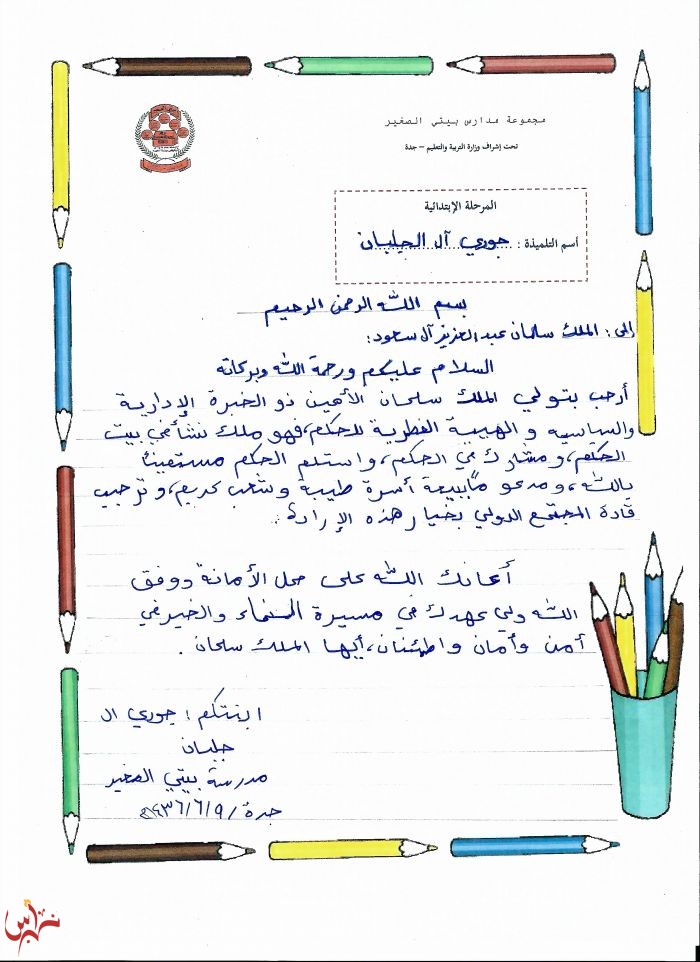 مجموعة مدارس بيتي الصغير
تحت إشراف وزارة التربية والتعليم - جدة
المرحلة الإبتدائية
أسم التلميذة : جوري آل الجليبان
بسم الله الرحمن الرحيم
إلى : الملك سلمان عبد العزيز آل سعود :
السلام عليكم ورحمة الله وبركاته
أرحب بتولي الملك سلمان الأمين ذو الخبرة الإدارية
والسياسيه و الهيبة الفطرية للحكم، فهو ملك نشأ في بيت
الحكم، ومشارك في الحكم، واستلم الحكم مستعينًا
بالله، ومدعو مبايعة أسرة طيبة وشعب كريم، وترحيب
قادة المجتمع الدولي بخيار هذه الإرادة.
أعانك الله على حمل الأمانة ووفق
الله ولي عهدك في مسيرة النماء والخير في
أمن وأمان واطمئنان، أيها الملك سلمان .
ابنتكم : جوري ال
جلبان
مدرسة بيتي الصغير
جدة / ١٤٣٦/٦/٩هـ
نبراس